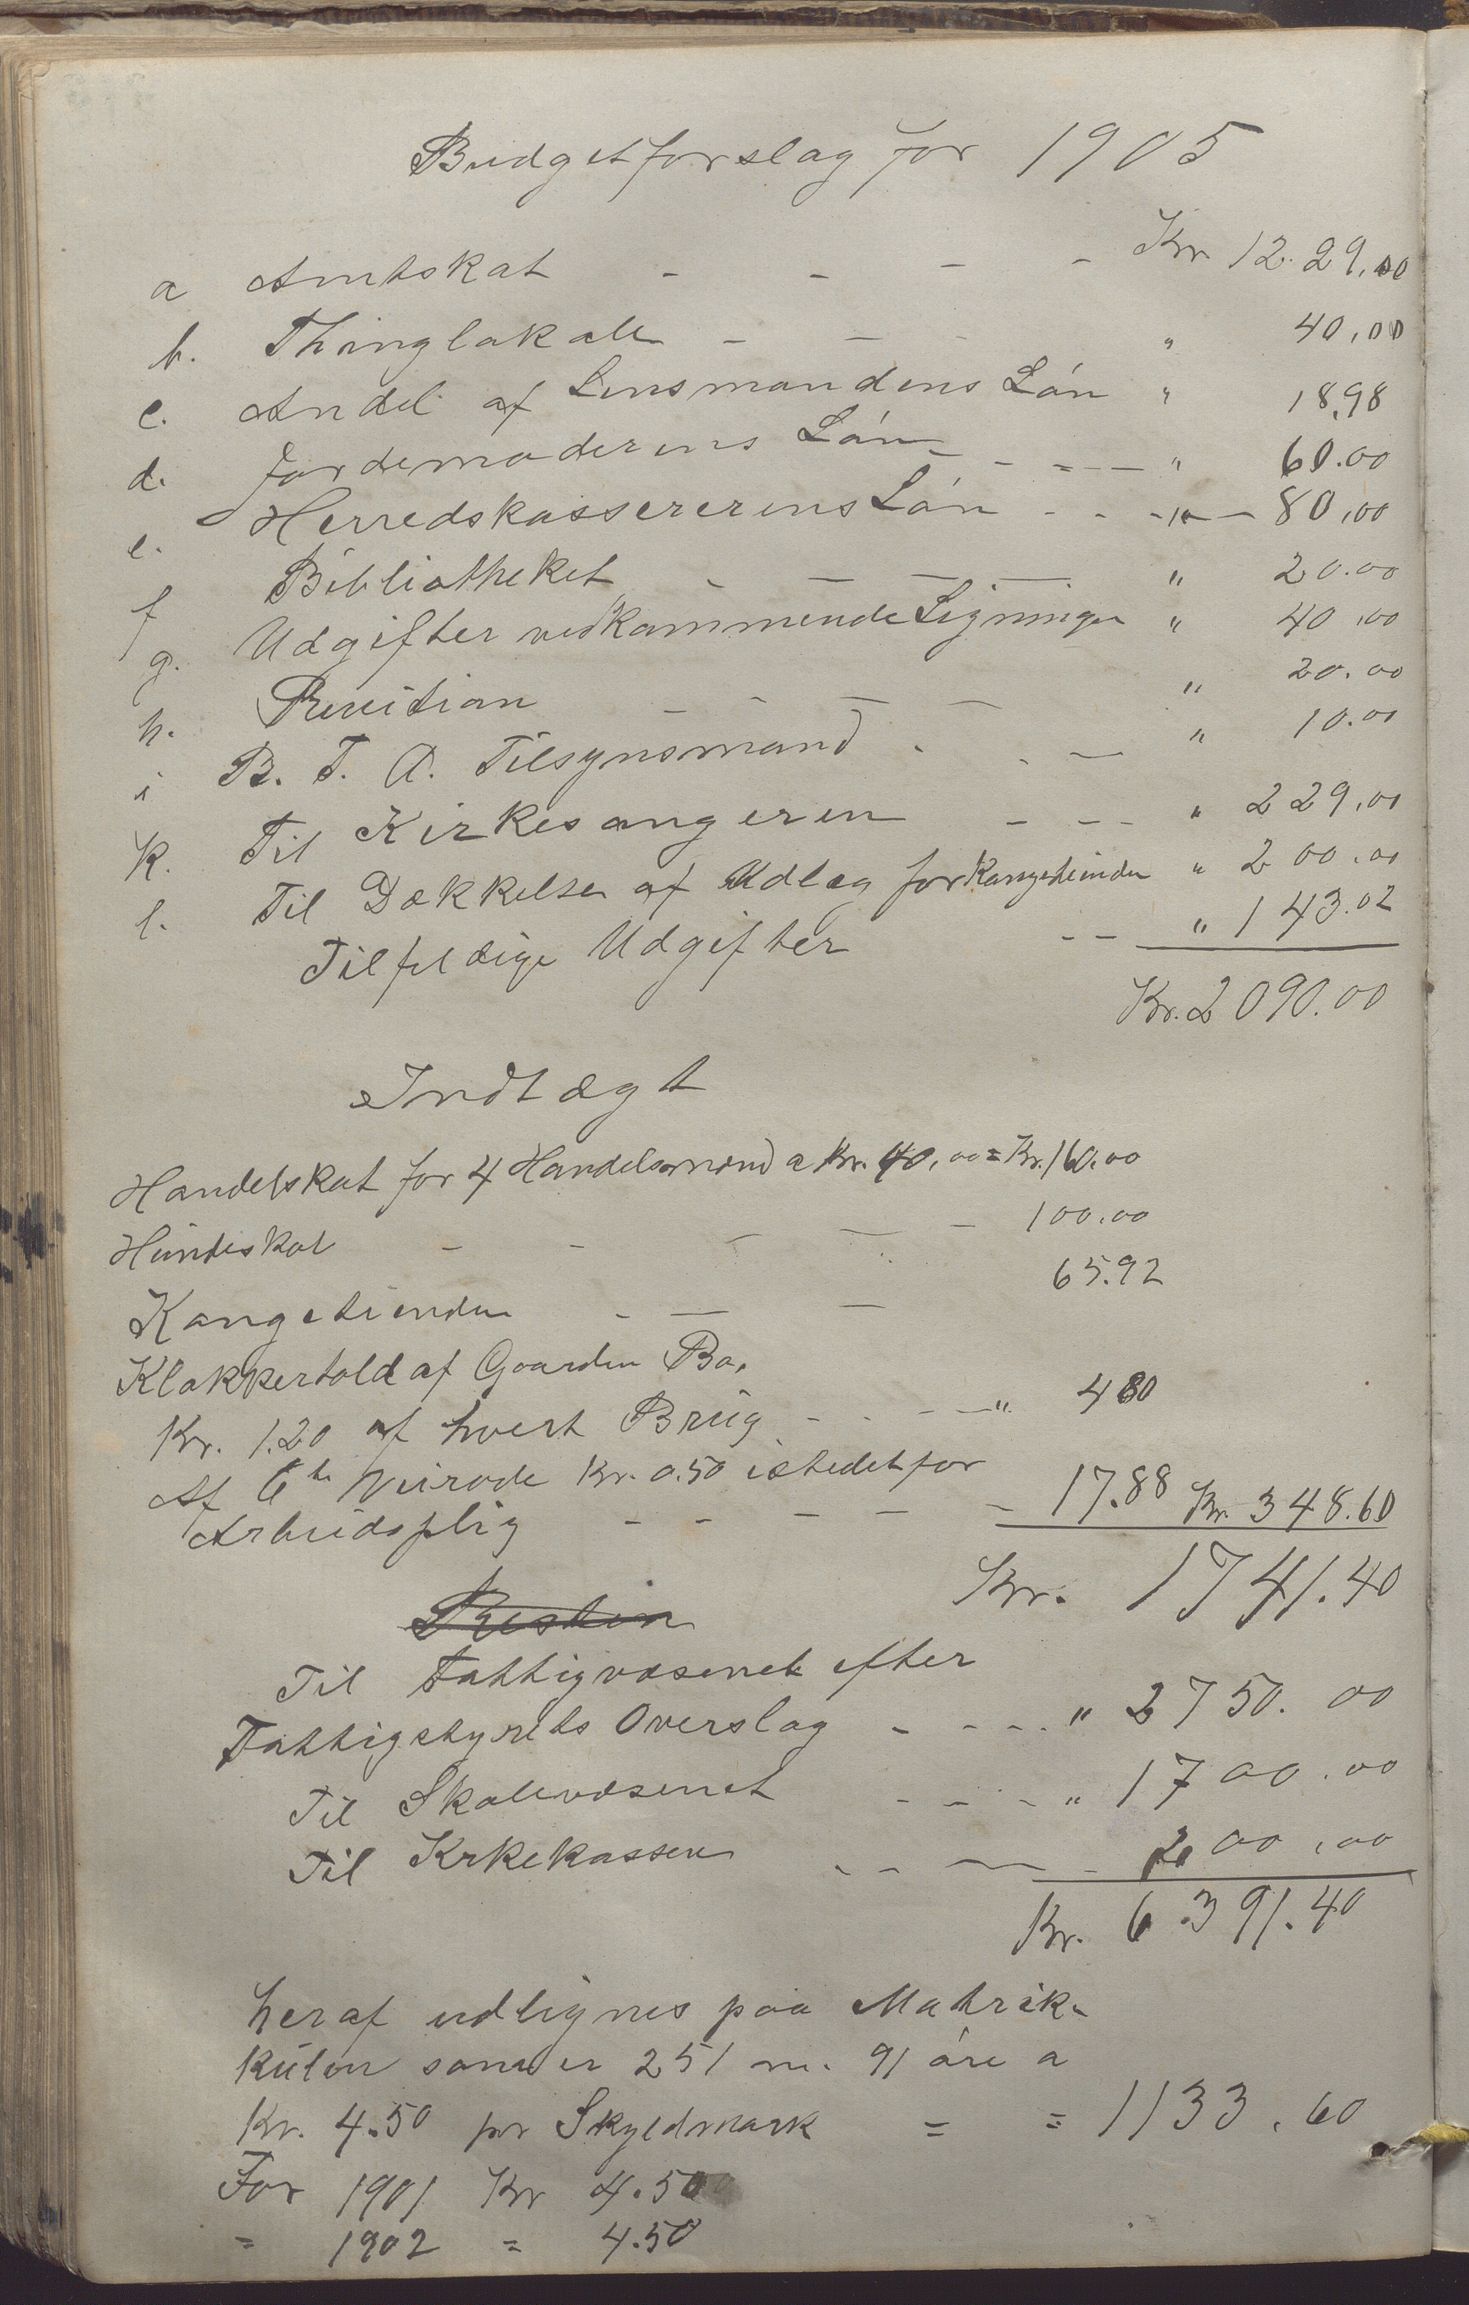 Budgetforslag for 1905
a Amtskat - - - - Kr 12.29,00
b. Thinglokale - - - " 40,00
c. Andel af Lensmandens Lön " 18,98
d. Jordemoderens Lön - - = - - " 60.00
e. Herredskassererens Lön - - - " - 80,00
f Bibliotheket - - - - " 20.00
g. Udgifter vedkommende Ligningen " 40,00
h. Revition - - - - " 20.00
i B. T. A. Tilsynsmand - - - " 10.00
k. Til Kirkesangeren - - - " 229,00
l. Til Dækkelse af Udlæg for Kongetienden " 200.00
Tilfeldige Udgifter - - " 143.02
Kr. 2090.00
Indtægt
Handelskat for 4 Handelsmænd a Kr. 40,00 = Kr. 160.00
Hundeskat - - - - - 100.00
Kongetienden - - - 65.92
Klokkertold af Gaarden Bø.
Kr. 1.20 af hvert Brug - - - - " 480
Af 6te Veirode Kr. 0.50 istedetfor
Arbeidsplig - - - - - 17.88 Kr. 348.60
Kr. 1741.40
Resten
Til Fattigvæsenet efter
Fattigstyrets Overslag - - - - " 2750.00
Til Skolevæsenet - - - " 1700.00
Til Krkekassen - - - - 200,00
Kr. 6391.40
heraf udlignes paa Matrik-
kulen som er 251 m. 91 öre a
Kr. 4.50 pr Skyldmark = = 1133.60
For 1901 Kr 4.50
= 1902 = 4.50